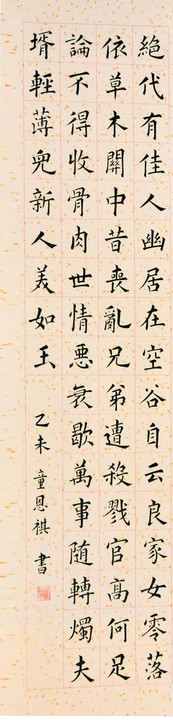 絕代有佳人幽居在空谷自云良家女零落
依草木關中昔喪亂兄弟遭殺戮官高何足
論不得收骨肉世情惡衰歇萬事隨轉燭夫
壻輕薄兒新人美如玉
乙未 童恩祺 書